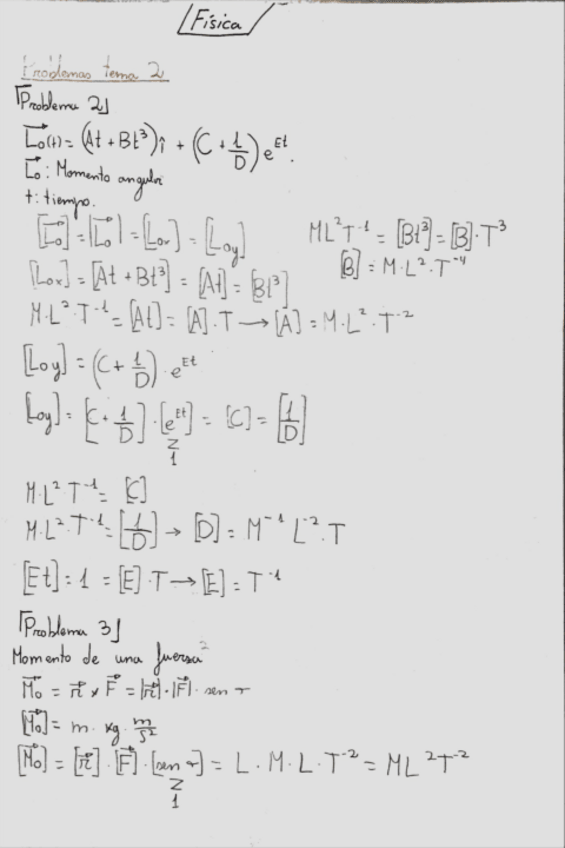 Física
Problemas tema 2
Problema 2
L⃗o(t) = (At + Bt³)î + (C + 1/D) e^Et.
L⃗o: Momento angular
t: tiempo.
[L⃗o] = |L⃗o| = [Lox] = [Loy]
ML²T⁻¹ = [Bt³] = [B]·T³
[B] = M·L²·T⁻⁴
[Lox] = [At + Bt³] = [At] = [Bt³]
M·L²·T⁻¹ = [At] = [A]·T → [A] = M·L²·T⁻²
[Loy] = (C + 1/D)·e^Et
[Loy] = [C + 1/D]·[e^Et] = [C] = [1/D]
1
M·L²·T⁻¹ = [C]
M·L²·T⁻¹ = [1/D] → [D] = M⁻¹ L⁻²·T
[Et] = 1 = [E]·T → [E] = T⁻¹
Problema 3
Momento de una fuersa
M⃗o = r⃗ × F⃗ = |r⃗|·|F⃗|·sen
[M⃗o] = m·kg·m/s²
[M⃗o] = [r⃗]·[F⃗]·[sen] = L·M·L·T⁻² = ML²T⁻²
1